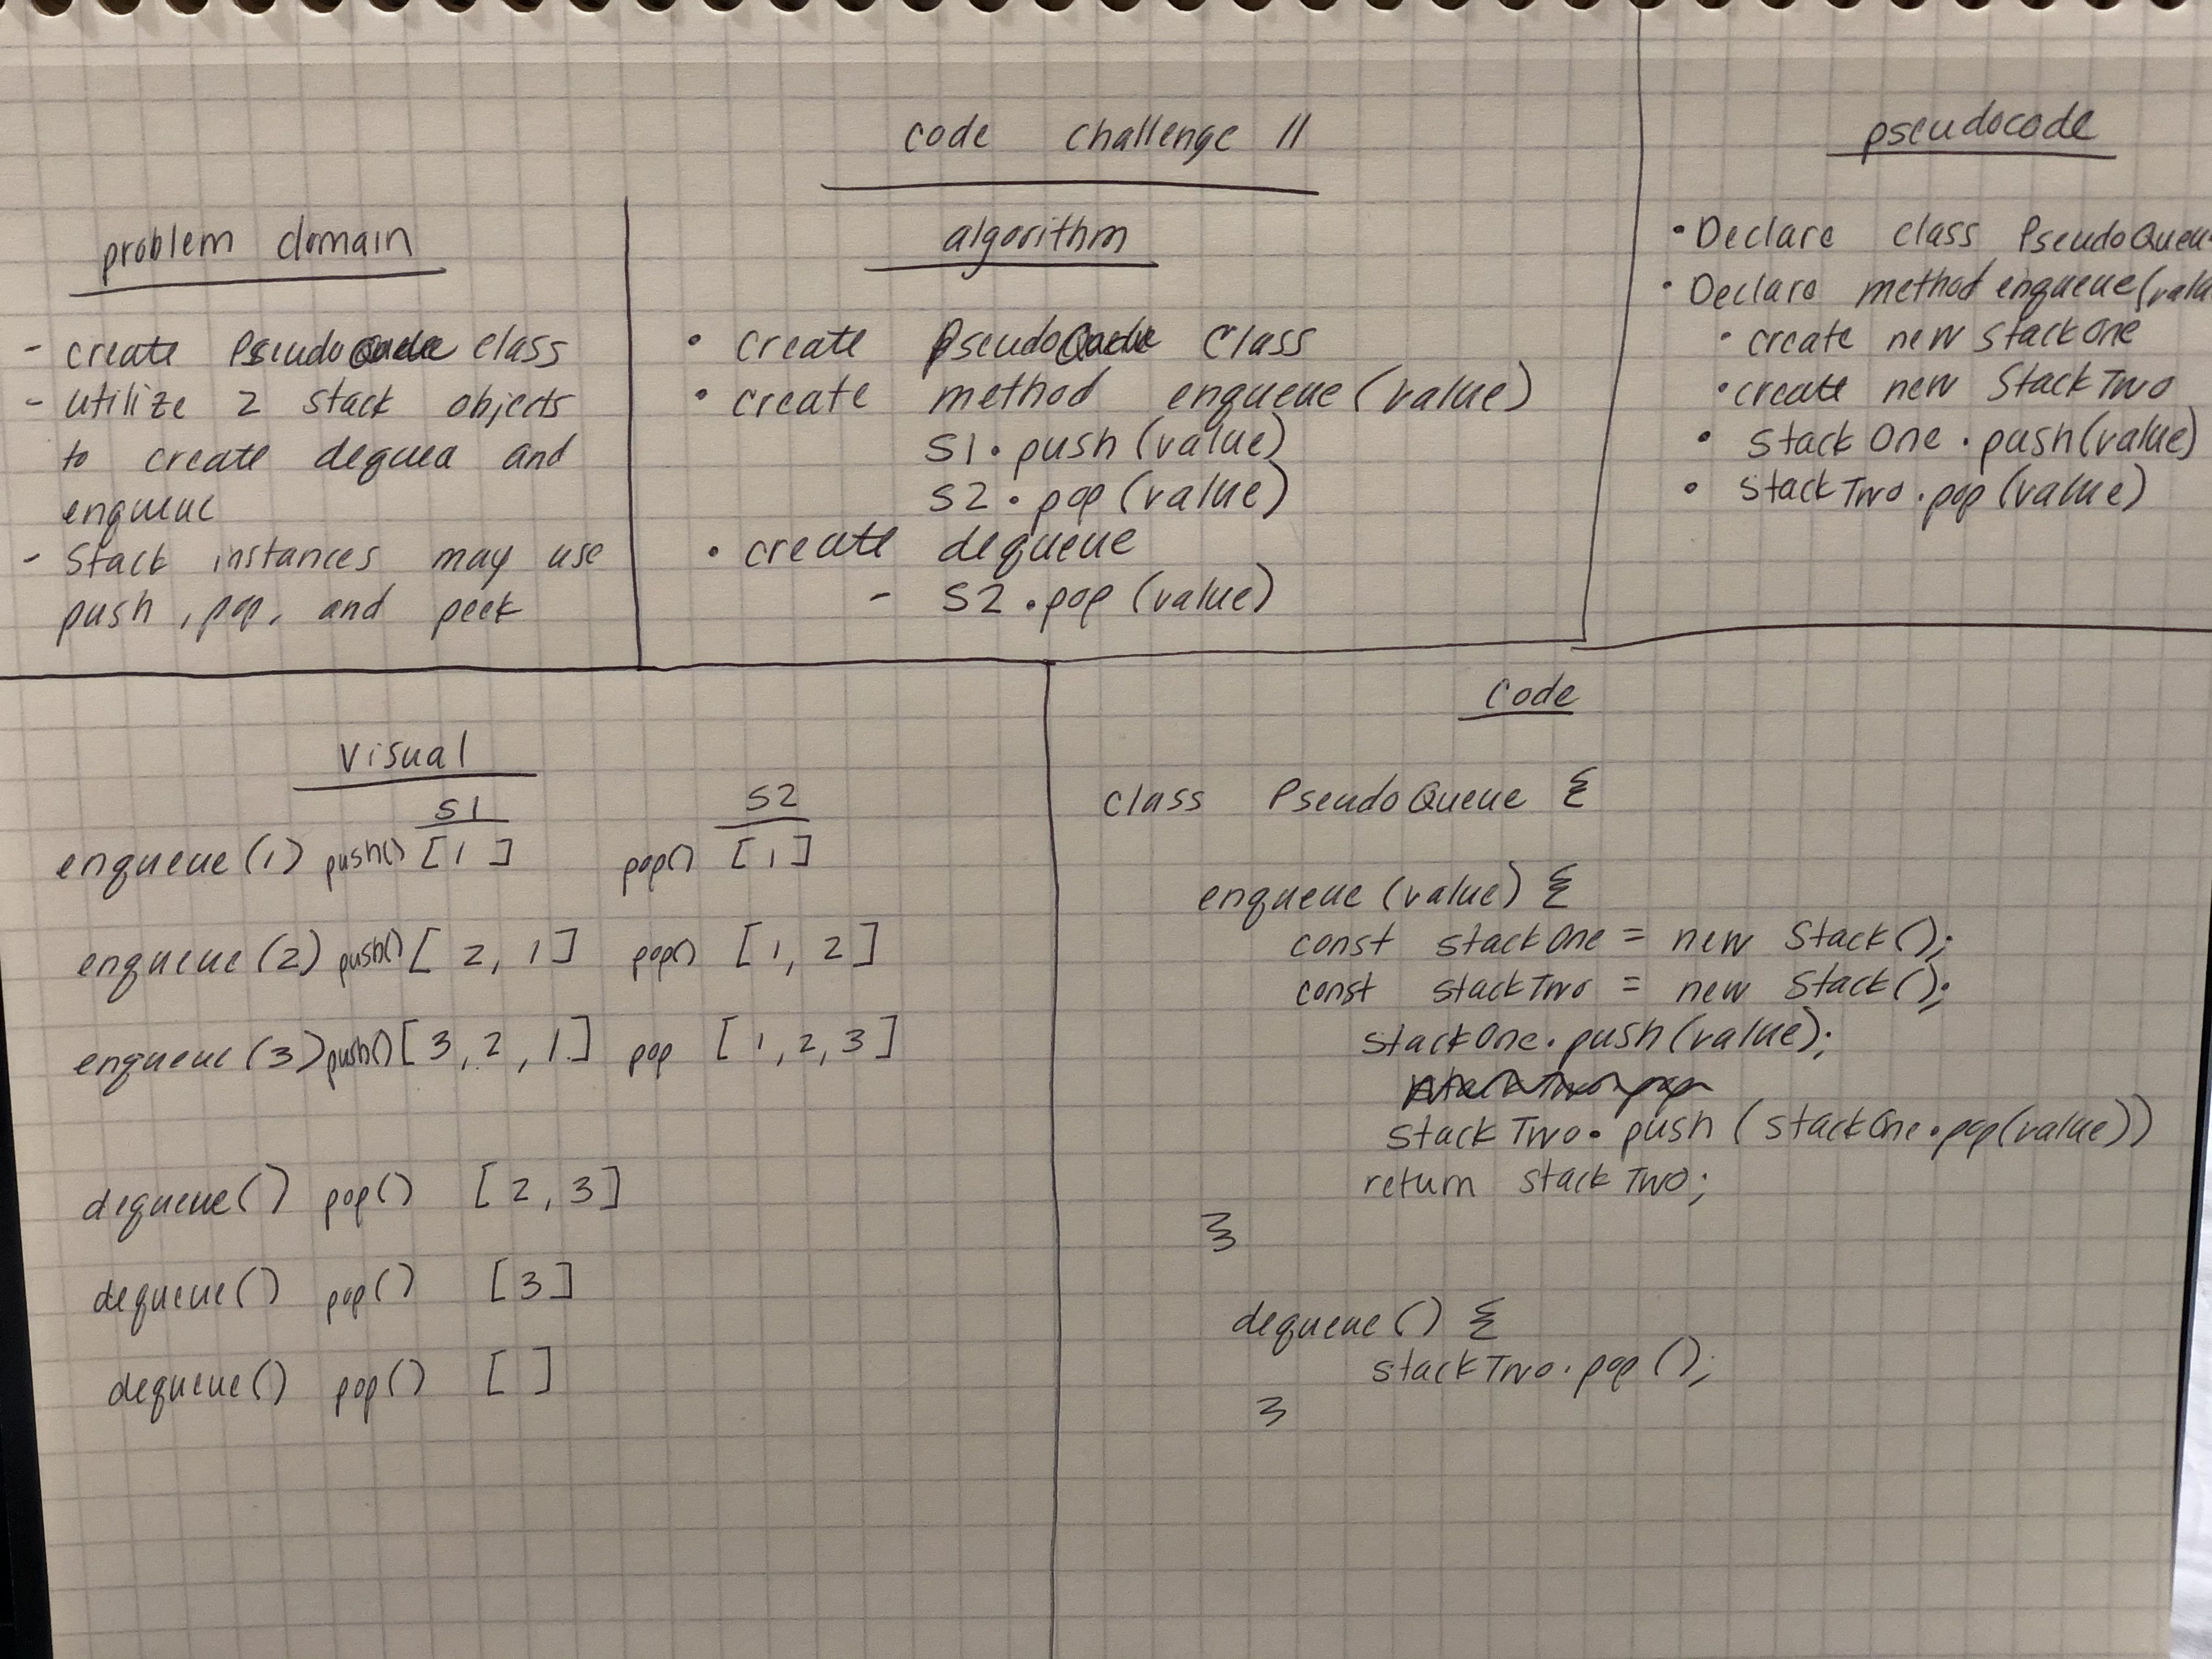 code challenge 11
problem domain
- create PseudoQueue class
- utilize 2 stack objects
to create dequea and
enqueue
- Stack instances may use
push, pop, and peek
algorithm
• create PseudoQueue Class
• create method enqueue (value)
S1.push (value)
S2.pop (value)
• create dequeue
- S2.pop (value)
pseudocode
• Declare class PseudoQueu
• Declare method enqueue (valu
• create new stackOne
• create new StackTwo
• stackOne.push(value)
• stackTwo.pop (value)
Visual
S1 S2
enqueue (1) push() [1] pop() [1]
enqueue (2) push() [2, 1] pop() [1, 2]
enqueue (3) push() [3, 2, 1] pop [1, 2, 3]
dequeue() pop() [2, 3]
dequeue() pop() [3]
dequeue() pop() [ ]
Code
class PseudoQueue {
enqueue (value) {
const stackOne = new Stack();
const stackTwo = new Stack();
stackOne.push(value);
stackTwo.push (stackOne.pop(value))
return stackTwo;
}
dequeue () {
stackTwo.pop ();
}